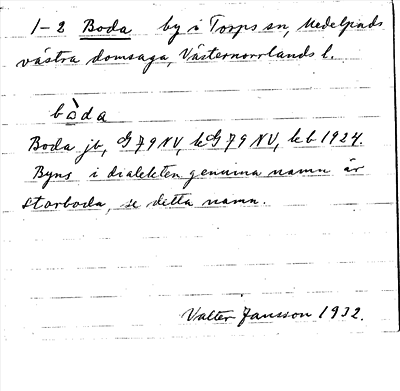 1-2 Boda by i Torps sn, Medelpads
västra domsaga, Västernorrlands l.
bòda
Boda jb, G 79 NV, kG 79 NV, kb 1924.
Byns i dialekten genuina namn är
Storboda, se detta namn.
Valter Jansson 1932.